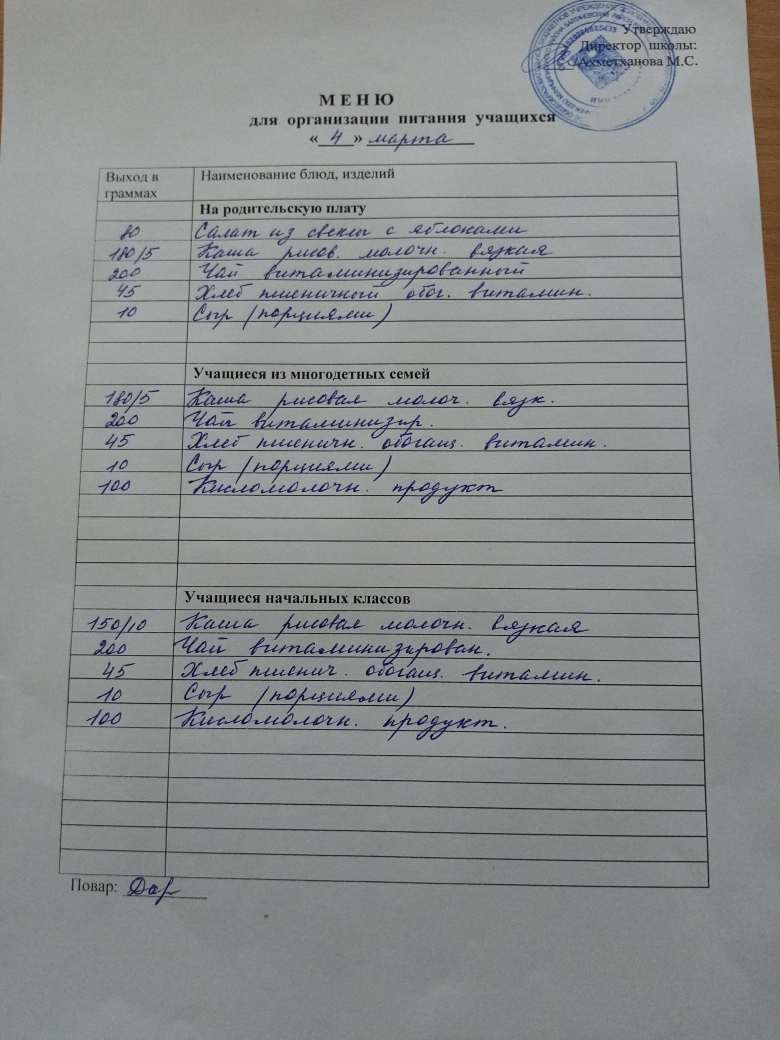 Утверждаю
Директор школы:
Ахметханова М.С.
М Е Н Ю
для организации питания учащихся
« 4 » марта
Выход в граммах Наименование блюд, изделий
На родительскую плату
80 Салат из свеклы с яблоками
180/5 Каша рисов. молочн. вязкая
200 Чай витаминизированный
45 Хлеб пшеничный обог. витамин.
10 Сыр (порциями)
Учащиеся из многодетных семей
180/5 Каша рисовая молоч. вязк.
200 Чай витаминизир.
45 Хлеб пшеничн. обогащ. витамин.
10 Сыр (порциями)
100 Кисломолочн. продукт
Учащиеся начальных классов
150/10 Каша рисовая молочн. вязкая
200 Чай витаминизирован.
45 Хлеб пшенич. обогащ. витамин.
10 Сыр (порциями)
100 Кисломолочн. продукт.
Повар: